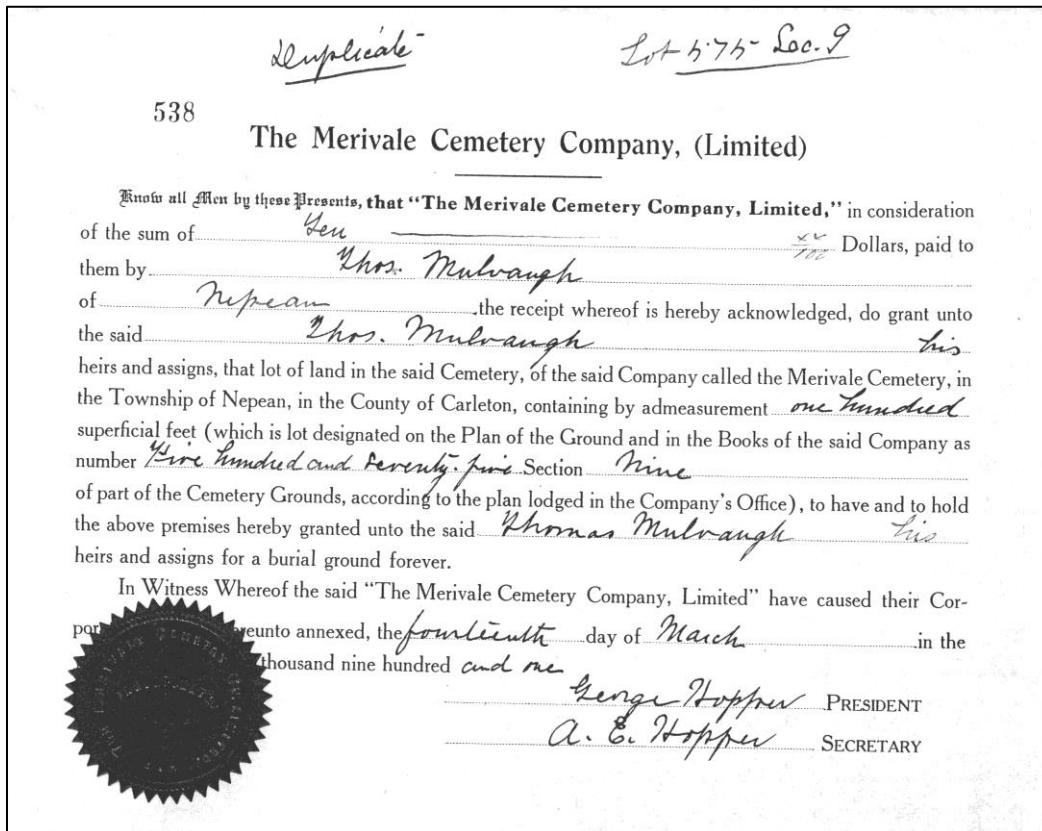 Duplicate
Lot 575 Sec. 9
538
The Merivale Cemetery Company, (Limited)
Know all Men by these Presents, that "The Merivale Cemetery Company, Limited," in consideration
of the sum of Ten xx/100 Dollars, paid to
them by Thos. Mulvaugh
of Nepean the receipt whereof is hereby acknowledged, do grant unto
the said Thos. Mulvaugh his
heirs and assigns, that lot of land in the said Cemetery, of the said Company called the Merivale Cemetery, in
the Township of Nepean, in the County of Carleton, containing by admeasurement one hundred
superficial feet (which is lot designated on the Plan of the Ground and in the Books of the said Company as
number Five hundred and seventy-five Section Nine
of part of the Cemetery Grounds, according to the plan lodged in the Company's Office), to have and to hold
the above premises hereby granted unto the said Thomas Mulvaugh his
heirs and assigns for a burial ground forever.
In Witness Whereof the said "The Merivale Cemetery Company, Limited" have caused their Cor-
por reunto annexed, the fourteenth day of March in the
thousand nine hundred and one
George Hopper PRESIDENT
A. E. Hopper SECRETARY